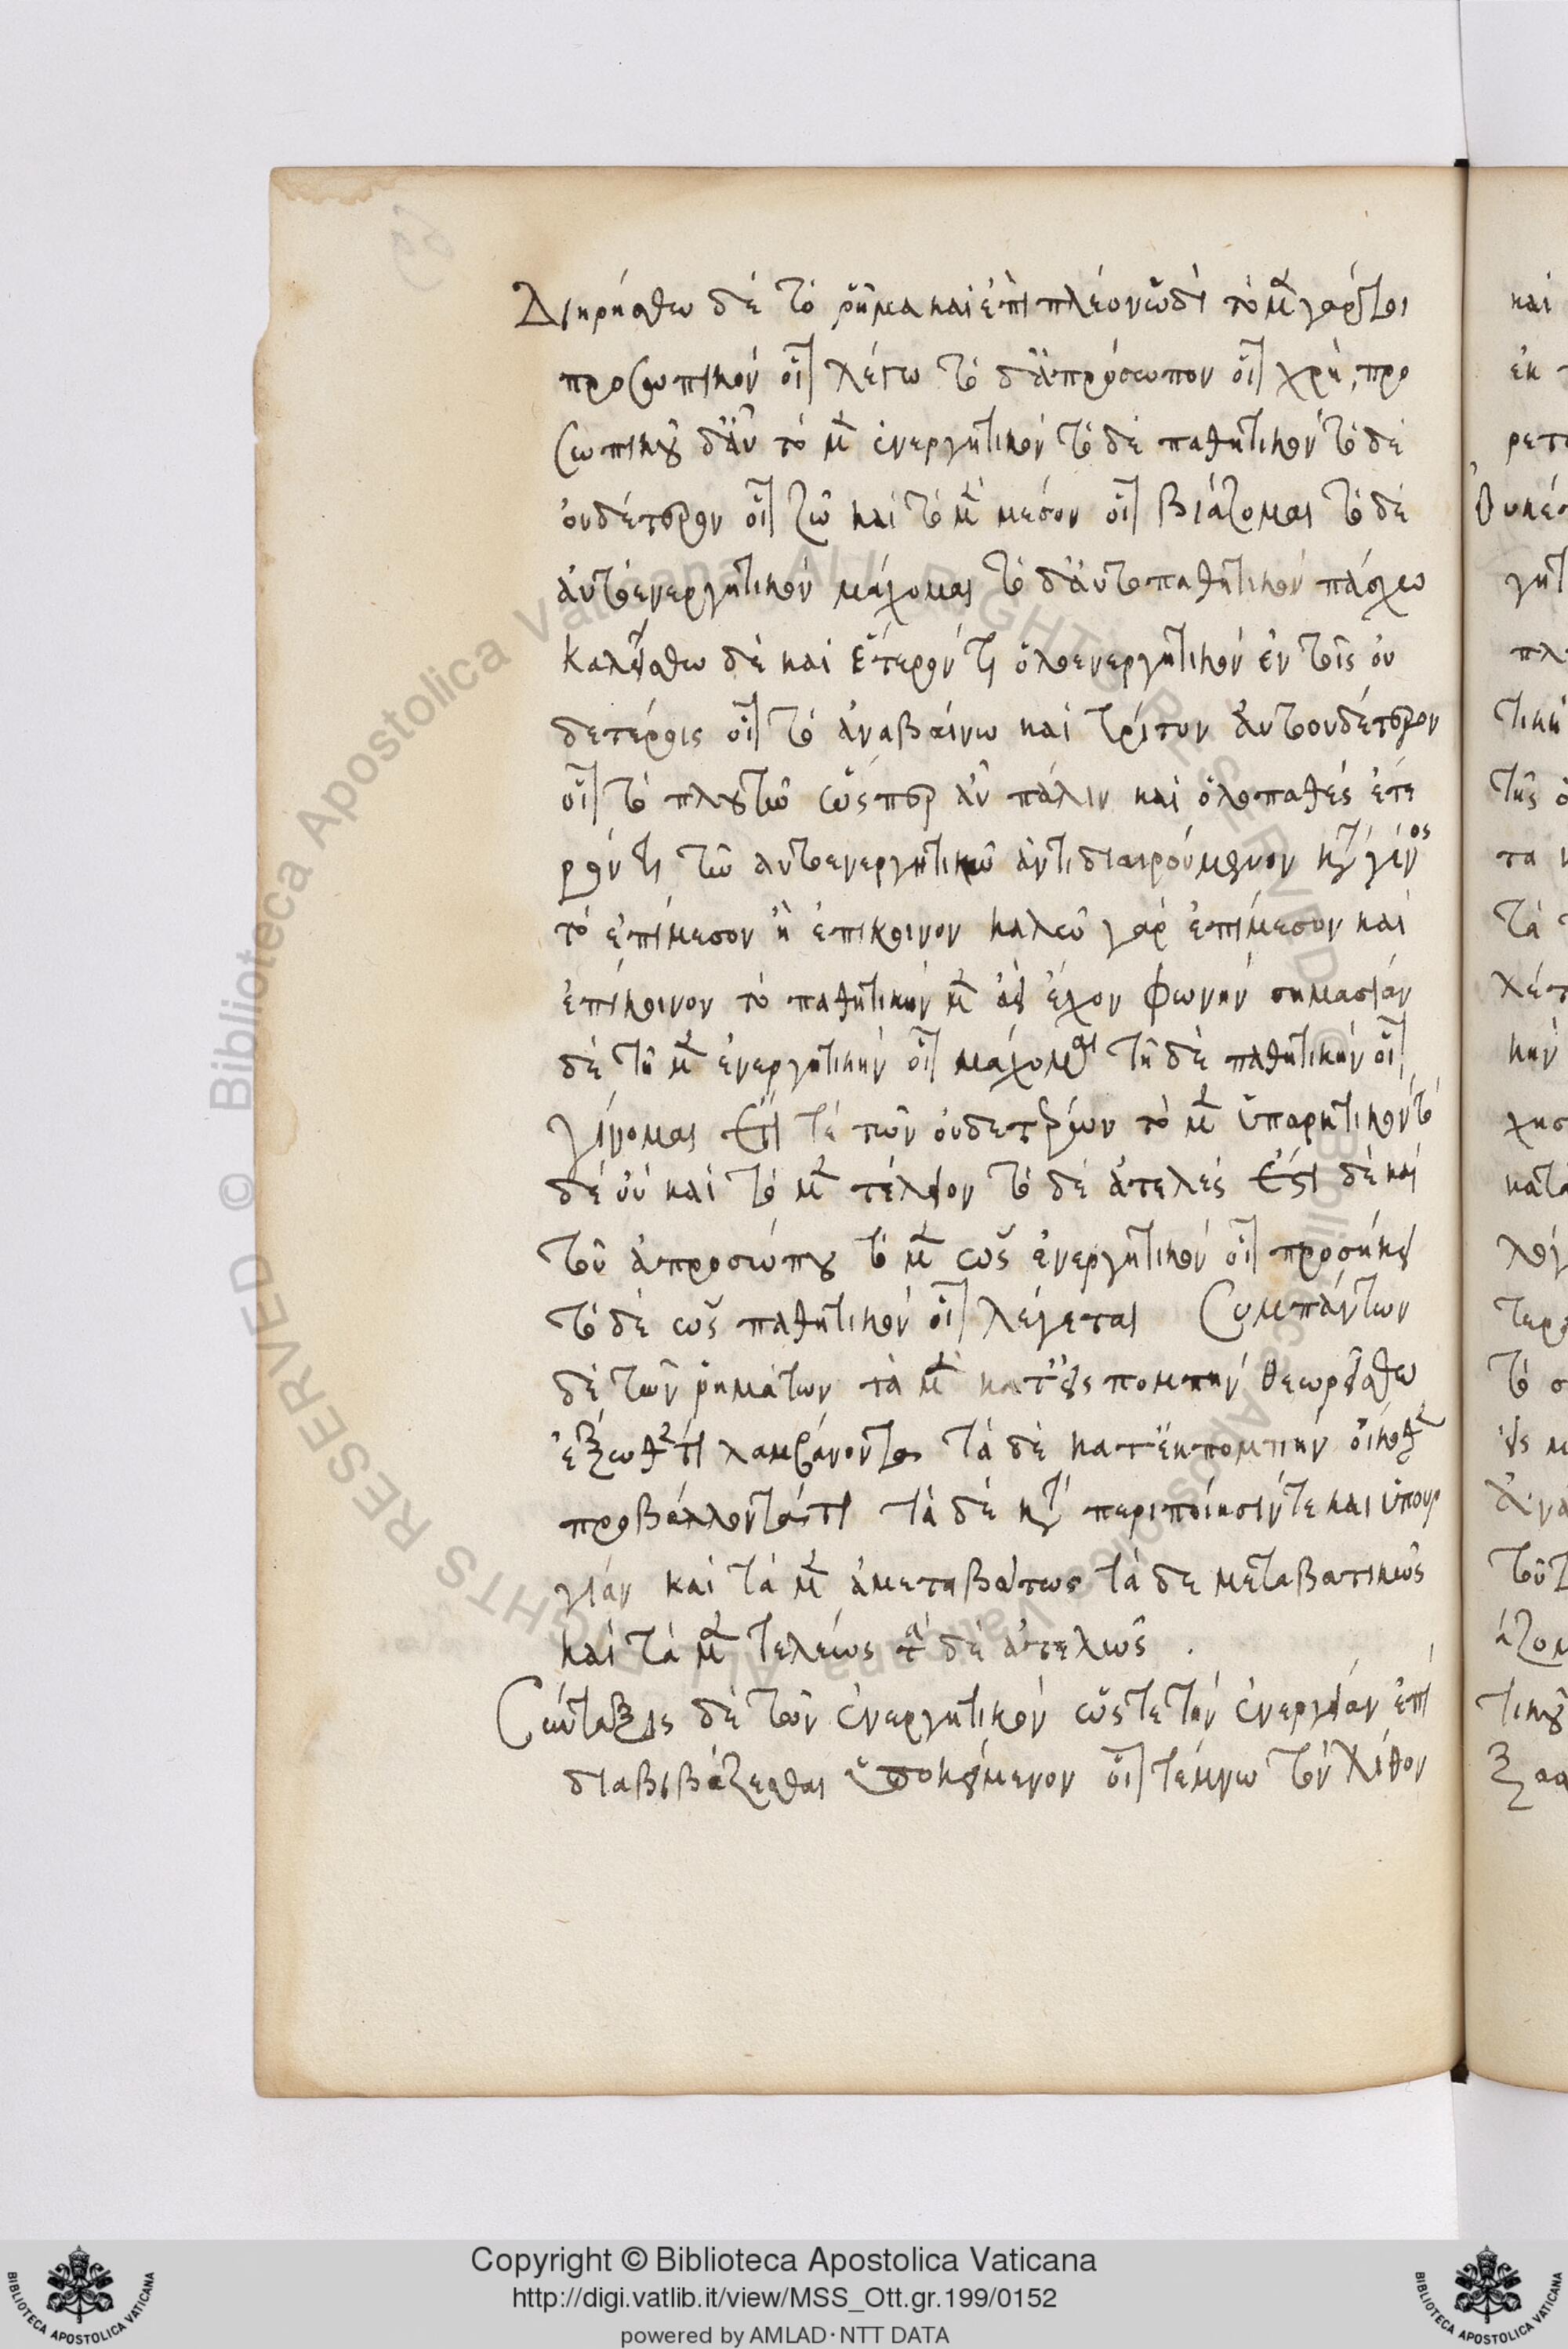 Διῃρήσθω δὲ τὸ ῥῆμα καὶ ἐπὶ πλέον ὧδὶ τὸ μὲν γάρ ἐστι
προσωπικὸν οἷον λέγω τὸ δ' ἀπρόσωπον οἷον χρή, προ
σωπικοῦ δ' αὖ τὸ μὲν ἐνεργητικὸν τὸ δὲ παθητικὸν τὸ δὲ
οὐδέτερον οἷον ζῶ καὶ τὸ μὲν μέσον οἷον βιάζομαι τὸ δὲ
αὐτοενεργητικὸν μάχομαι τὸ δ' αὐτοπαθητικὸν πάσχω
καλείσθω δὲ καὶ ἕτερόν τι ὁλοενεργητικὸν ἐν τοῖς οὐ
δετέροις οἷον τὸ ἀναβαίνω καὶ τρίτον αὐτοουδέτερον
οἷον τὸ πλουτῶ ὥσπερ ἂν πάλιν καὶ ὁλοπαθές ἕτε
ρόν τι τῶ αὐτοενεργητικῶ ἀντιδιαιρούμενον κατὰ γένος
τὸ ἐπίμεσον ἢ ἐπίκοινον καλῶ γὰρ ἐπίμεσον καὶ
ἐπίκοινον τὸ παθητικὴν μὲν ἀεὶ ἔχον φωνὴν σημασίαν
δὲ τῆ μὲν ἐνεργητικὴν οἷον μάχομαι τῆ δὲ παθητικὴν οἷον
γίνομαι ἔτι τὲ τῶν οὐδετέρων τὸ μὲν ὑπαρκτικὸν τὸ
δὲ οὐ καὶ τὸ μὲν τέλειον τὸ δὲ ἀτελές ἔστι δὲ καὶ
τοῦ ἀπροσώπου τὸ μὲν ὡς ἐνεργητικὸν οἷον προσήκει
τὸ δὲ ὡς παθητικὸν οἷον λέγεται Συμπάντων
δὲ τῶν ῥημάτων τὰ μὲν κατ' εἰσπομπὴν θεωρείσθω
ἔξωθέν τι λαμβάνοντα τὰ δὲ κατ' ἐκπομπὴν οἴκοθεν
προβάλλοντά τι τὰ δὲ κατὰ περιποίησίν τε καὶ ὑπουρ
γίαν καὶ τὰ μὲν ἀμεταβάτως τὰ δὲ μεταβατικῶς
καὶ τὰ μὲν τελείως τὰ δὲ ἀτελῶς .
Σύνταξις δὲ τῶν ἐνεργητικὸν ὥστε τὴν ἐνεργείαν ἐπὶ
διαβιβάζεσθαι ὑποκείμενον οἷον τέμνω τὸν λίθον
Copyright © Biblioteca Apostolica Vaticana
http://digi.vatlib.it/view/MSS_Ott.gr.199/0152
powered by AMLAD·NTT DATA